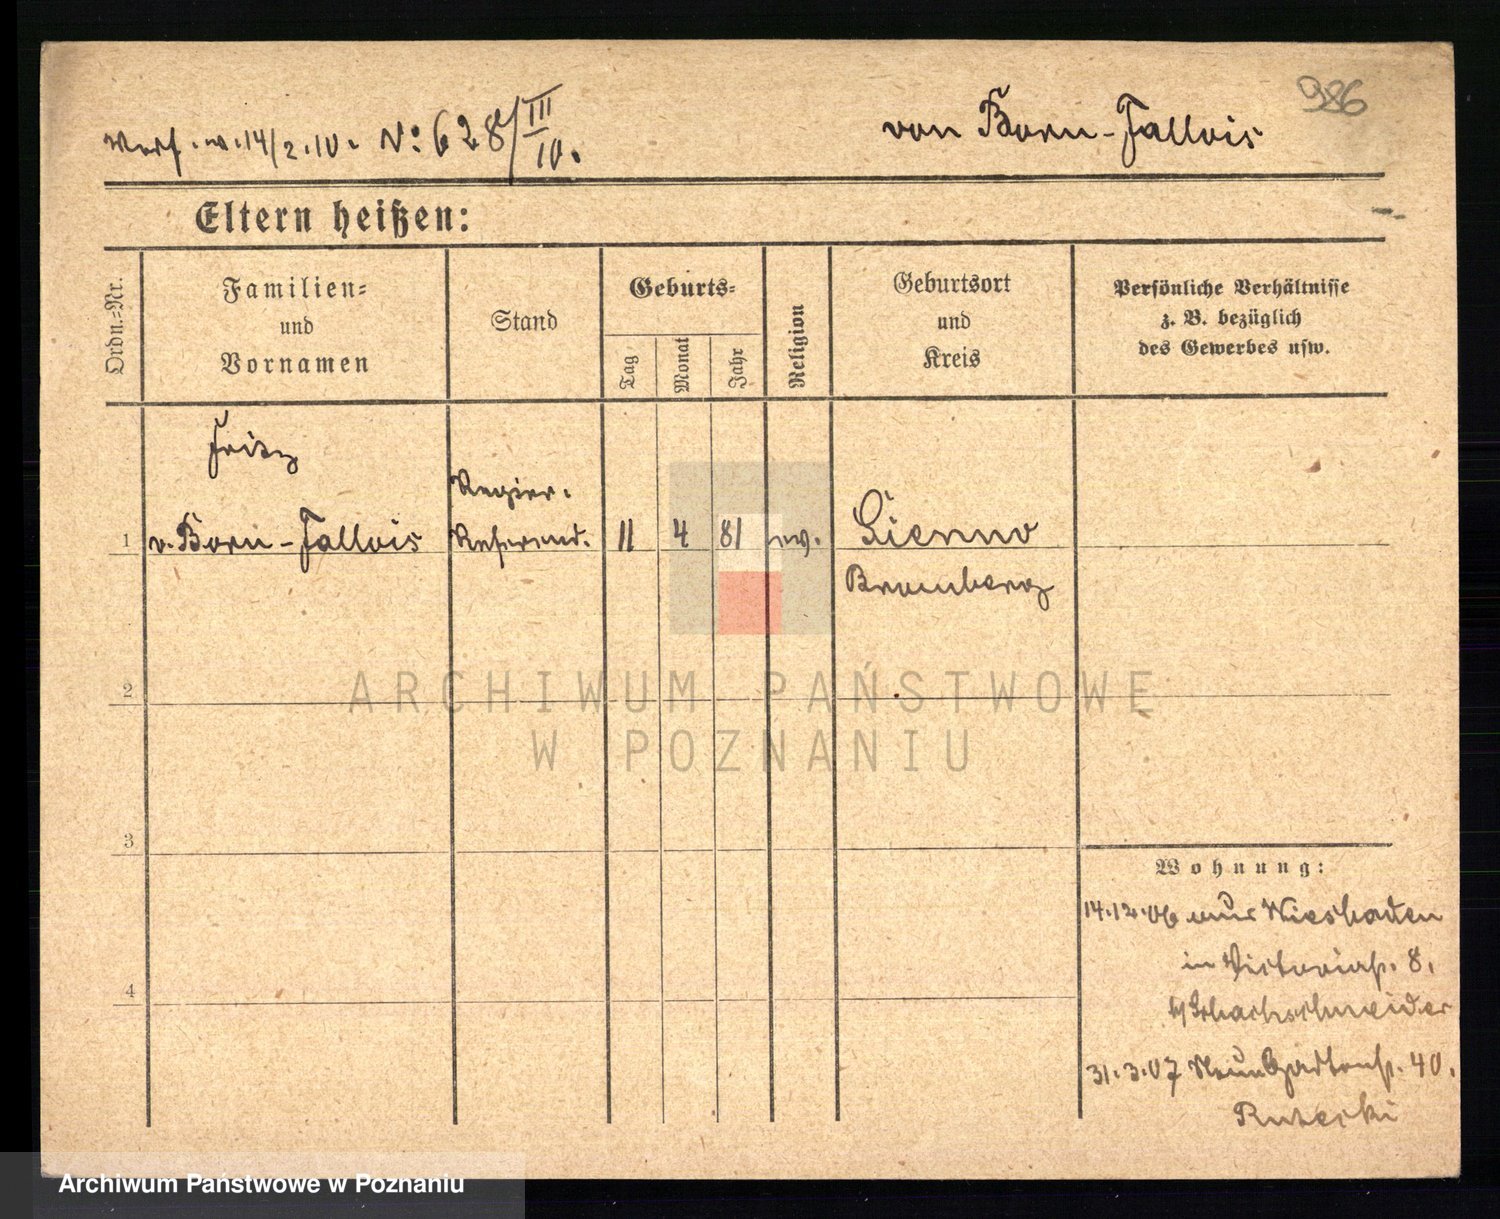 986
Verf. v. 14/2.10. No: 628/III/10.
von Born-Fallois
Eltern heißen:
Ordn.-Nr.
Familien-
und
Vornamen
Stand
Geburts-
Tag
Monat
Jahr
Religion
Geburtsort
und
Kreis
Persönliche Verhältnisse
z. B. bezüglich
des Gewerbes usw.
Fritz
1 v. Born-Fallois
Regier.
Referend.
11 4 81 ev.
Sienno
Bromberg
2
3
4
Wohnung:
14.12.06 aus Wiesbaden
in Victoriast. 8.
b/ Schachschneider
31.3.07 Neue Gartenst. 40.
Rutecki
ARCHIWUM PAŃSTWOWE
W POZNANIU
Archiwum Państwowe w Poznaniu